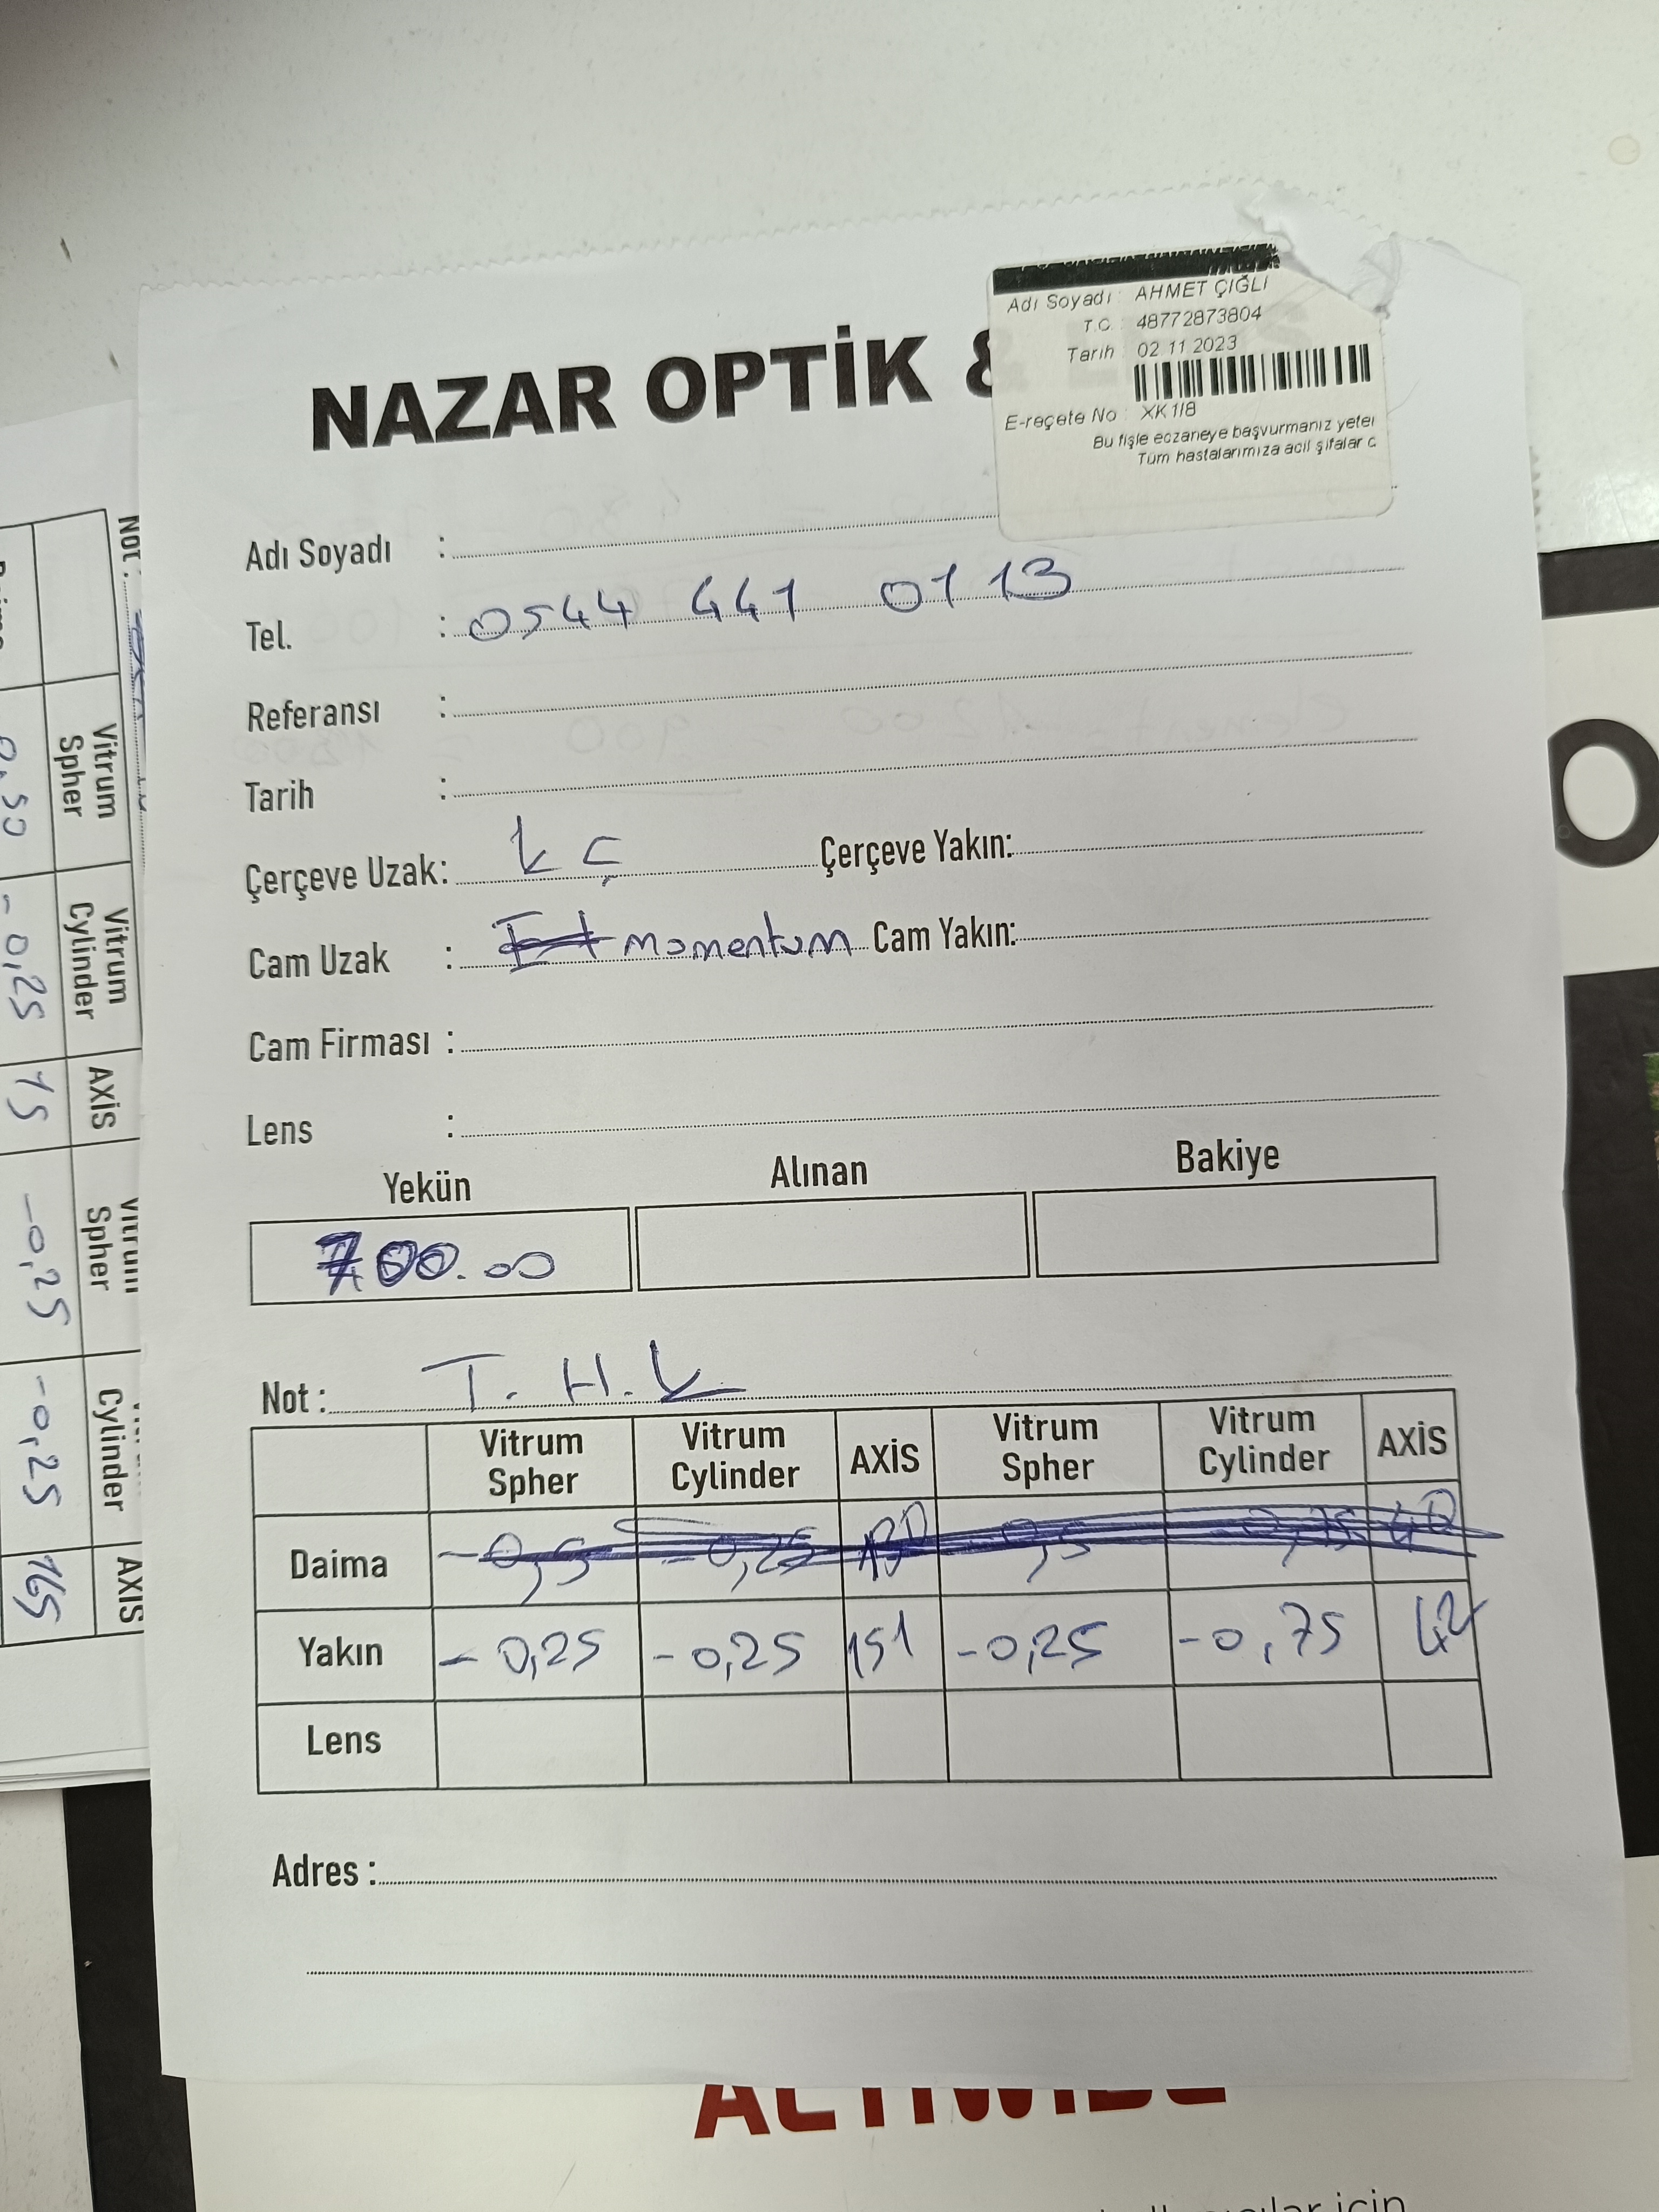 NAZAR OPTİK &
Adı Soyadı : AHMET ÇIĞLI
T.C. : 48772873804
Tarih : 02.11.2023
E-reçete No : XK1I8
Bu fişle eczaneye başvurmanız yeter
Tüm hastalarımıza acil şifalar d
Adı Soyadı :
Tel. : 0544 441 01 13
Referansı :
Tarih :
Çerçeve Uzak: k Ç Çerçeve Yakın:
Cam Uzak : momentum Cam Yakın:
Cam Firması :
Lens :
Yekün Alınan Bakiye
700.00
Not : T. H. k
Vitrum Spher Vitrum Cylinder AXİS Vitrum Spher Vitrum Cylinder AXİS
Daima -0,5 -0,25 -0,5 -0,75 40
Yakın -0,25 -0,25 151 -0,25 -0,75 42
Lens
Adres :
Not :
Vitrum Spher Vitrum Cylinder AXİS Vitrum Spher Cylinder AXİS
0,50 -0,25 15 -0,25 -0,25 165
O
için